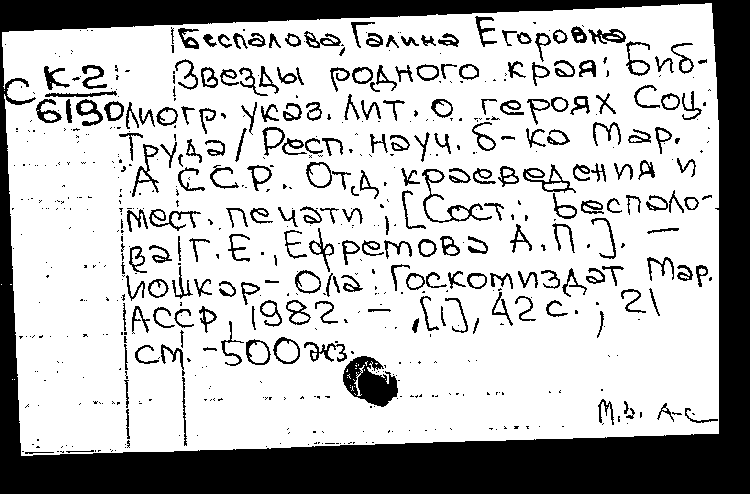 Беспалова, Галина Егоровна
С К-2
6190
Звезды родного края: Биб-
лиогр. указ. лит. о героях Соц.
Труда / Респ. науч. б-ка Мар.
АССР. Отд. краеведения и
мест. печати; [Сост.: Беспало-
ва Г.Е., Ефремова А.П.]. —
Йошкар-Ола: Госкомиздат Мар.
АССР, 1982. —, [1], 42 с.; 21
см. -500 экз.